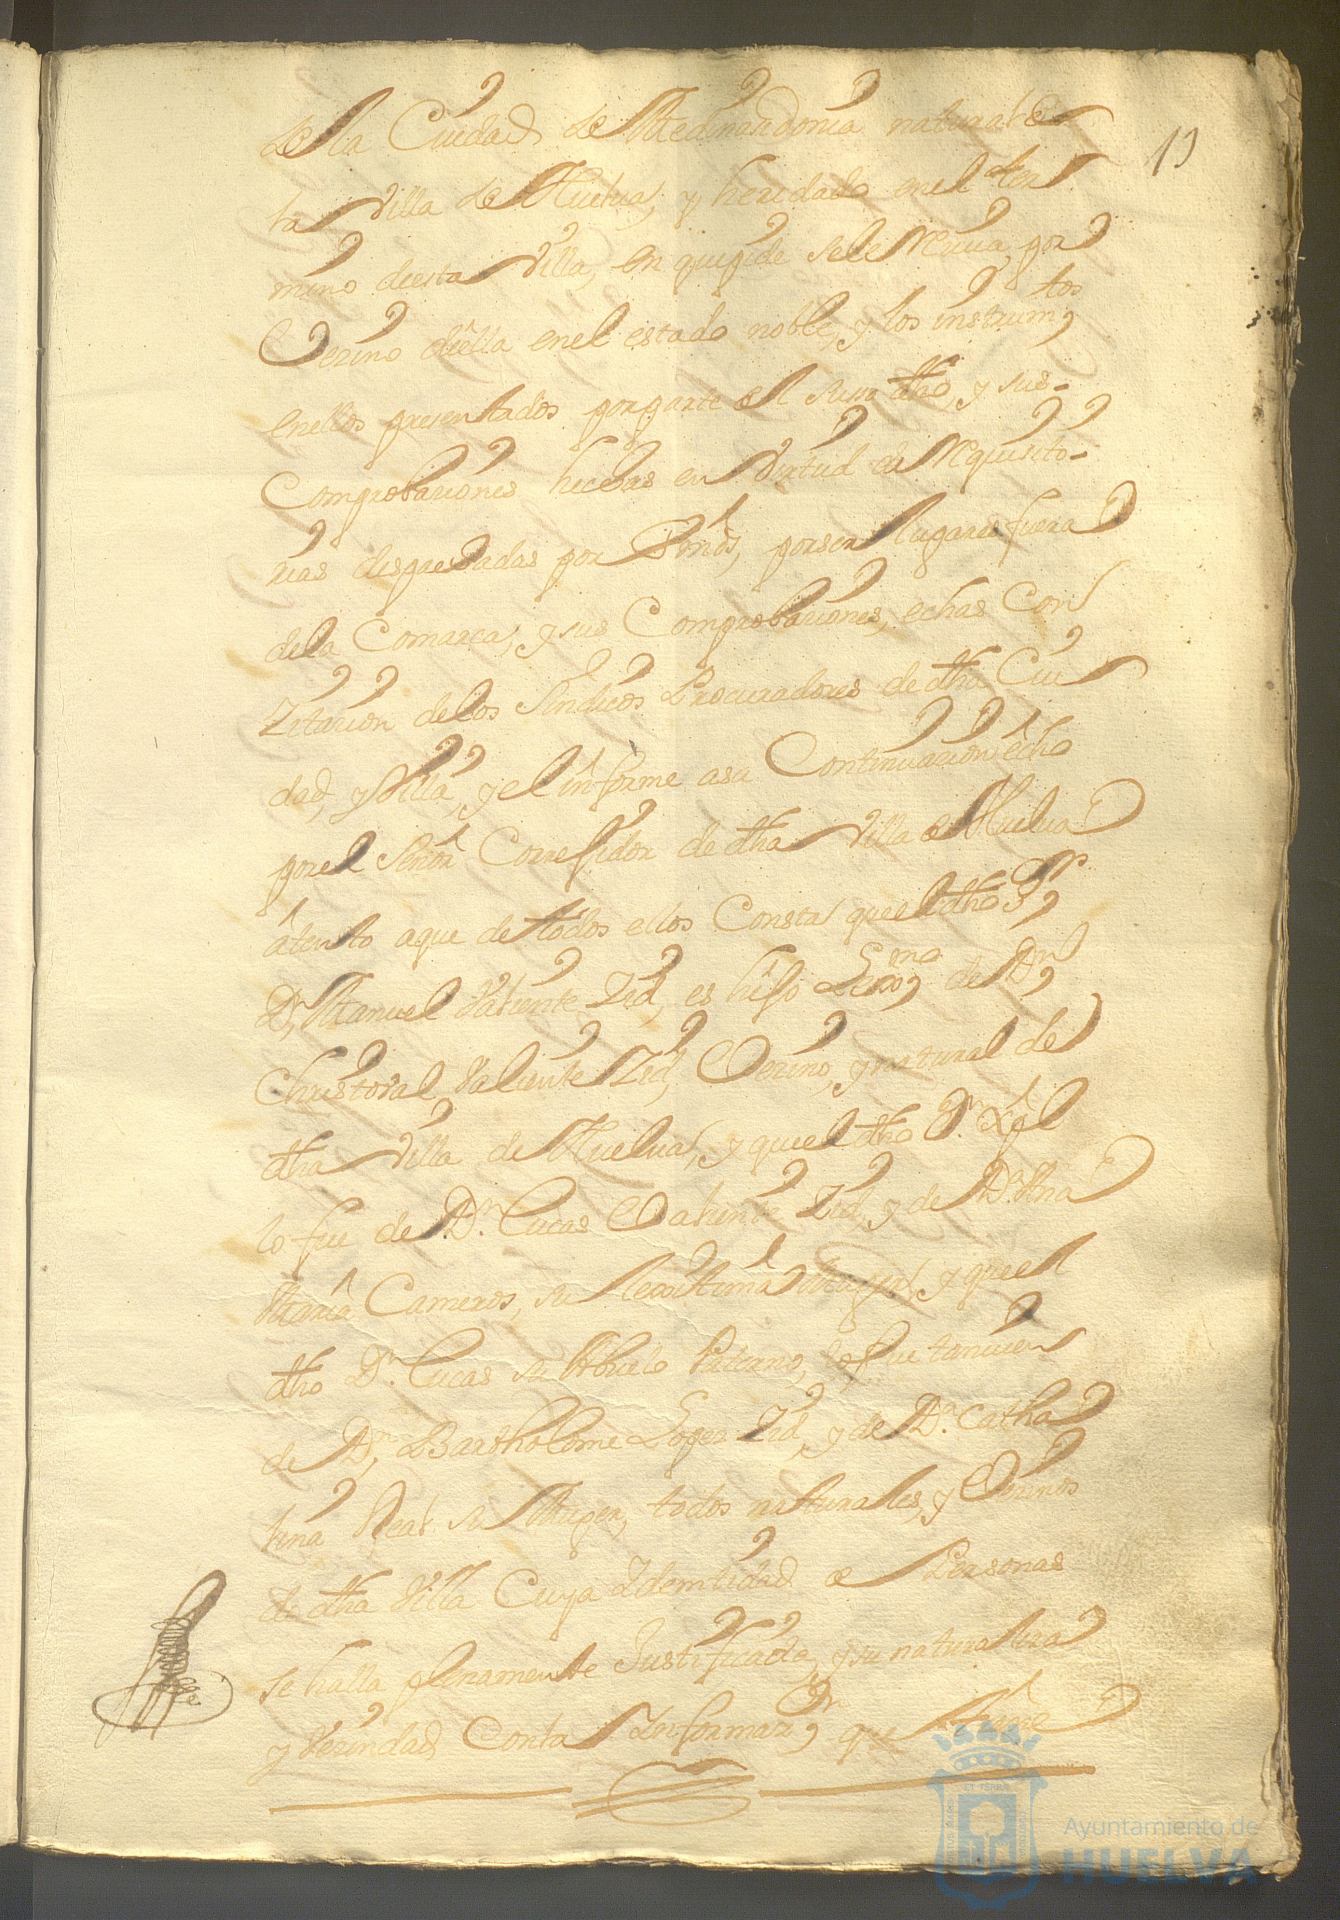 de la Ciudad de Medinasidonia natural de
la Villa de Huelva, y heredado en el ter
mino de esta Villa, en que pide se le reciva por
Vezino della en el estado noble, y los instrum.tos
en ellos presentados por parte del suso dho, y sus
Comprobaciones hechas en Virtud de requisito-
rias despachadas por por ser lugares fuera
de la Comarca, y sus Comprobaciones, echas Con
Zitacion de los Sindicos Procuradores de dha Ciu
dad, y Villa, y el informe a su Continuacion êcho
por el Señor Correxidor de dha Villa de Huelva
âtento a que de todos ellos Consta que el dho
Dn Manuel Valiente Zid, es hijo de Dn
Christoval Valiente Zid, Vezino, y natural de
dha Villa de Huelva, y que el dho Dn
lo fue de Dn. Lucas Valiente Zid, y de Da Ana
Maria Cameros, su lexitima Muger, y que el
dho Dn. Lucas su Abuelo Paterno, lo fue tanvien
de Dn Bartholome Lopez Zid, y de Da. Catha
lina Real su Muger, todos naturales, y Vezinos
de dha Villa Cuya Ydentidad de Personas
se halla plenamente Justificada, y su naturaleza
y Vezindad Con la Informazn que
Ayuntamiento de
HUELVA